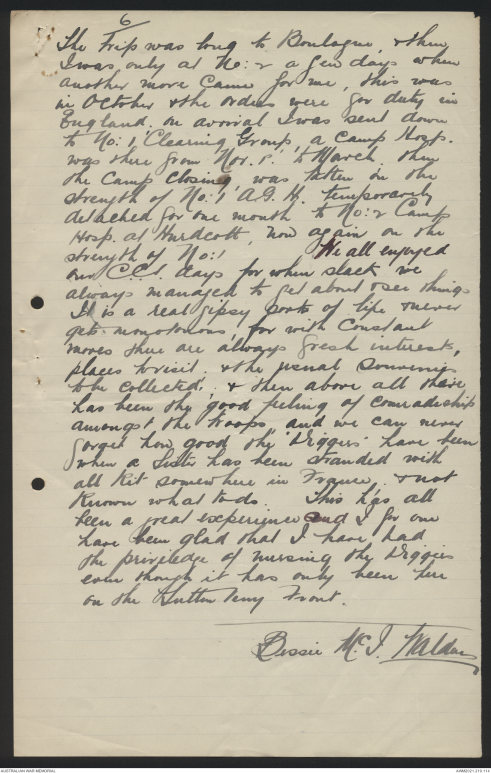 6
The trip was long to Boulogne, & then
I was only at No: 2 a few days when
another move came for me, this was
in October & the orders were for duty in
England. on arrival I was sent down
to No: 1, Clearing Group, a Camp Hosp.
was there from Nov. 1st to March. then
the Camp closing was taken on the
strength of No: 1 A.G.H. temporarily
detached for one month to No: 2 Camp
Hosp. at Hurdcott, now again on the
strength of No: 1 We all enjoyed
our C.C.S. days for when slack we
always managed to get about & see things
It is a real gipsy sort of life & never
gets monotonous, for with constant
moves there are always fresh interests,
places to visit. & the usual souvenirs
to be collected. & then above all there
has been the good feeling of comradeship
amongst the troops, and we can never
forget how good the 'Diggers' have been
when a Sister has been stranded with
all kit somewhere in France & not
known what to do. This has all
been a great experience and I for one
have been glad that I have had
the priviledge of nursing the Diggers
even though it has only been here
on the Front.
Bessie McI.
AUSTRALIAN WAR MEMORIAL